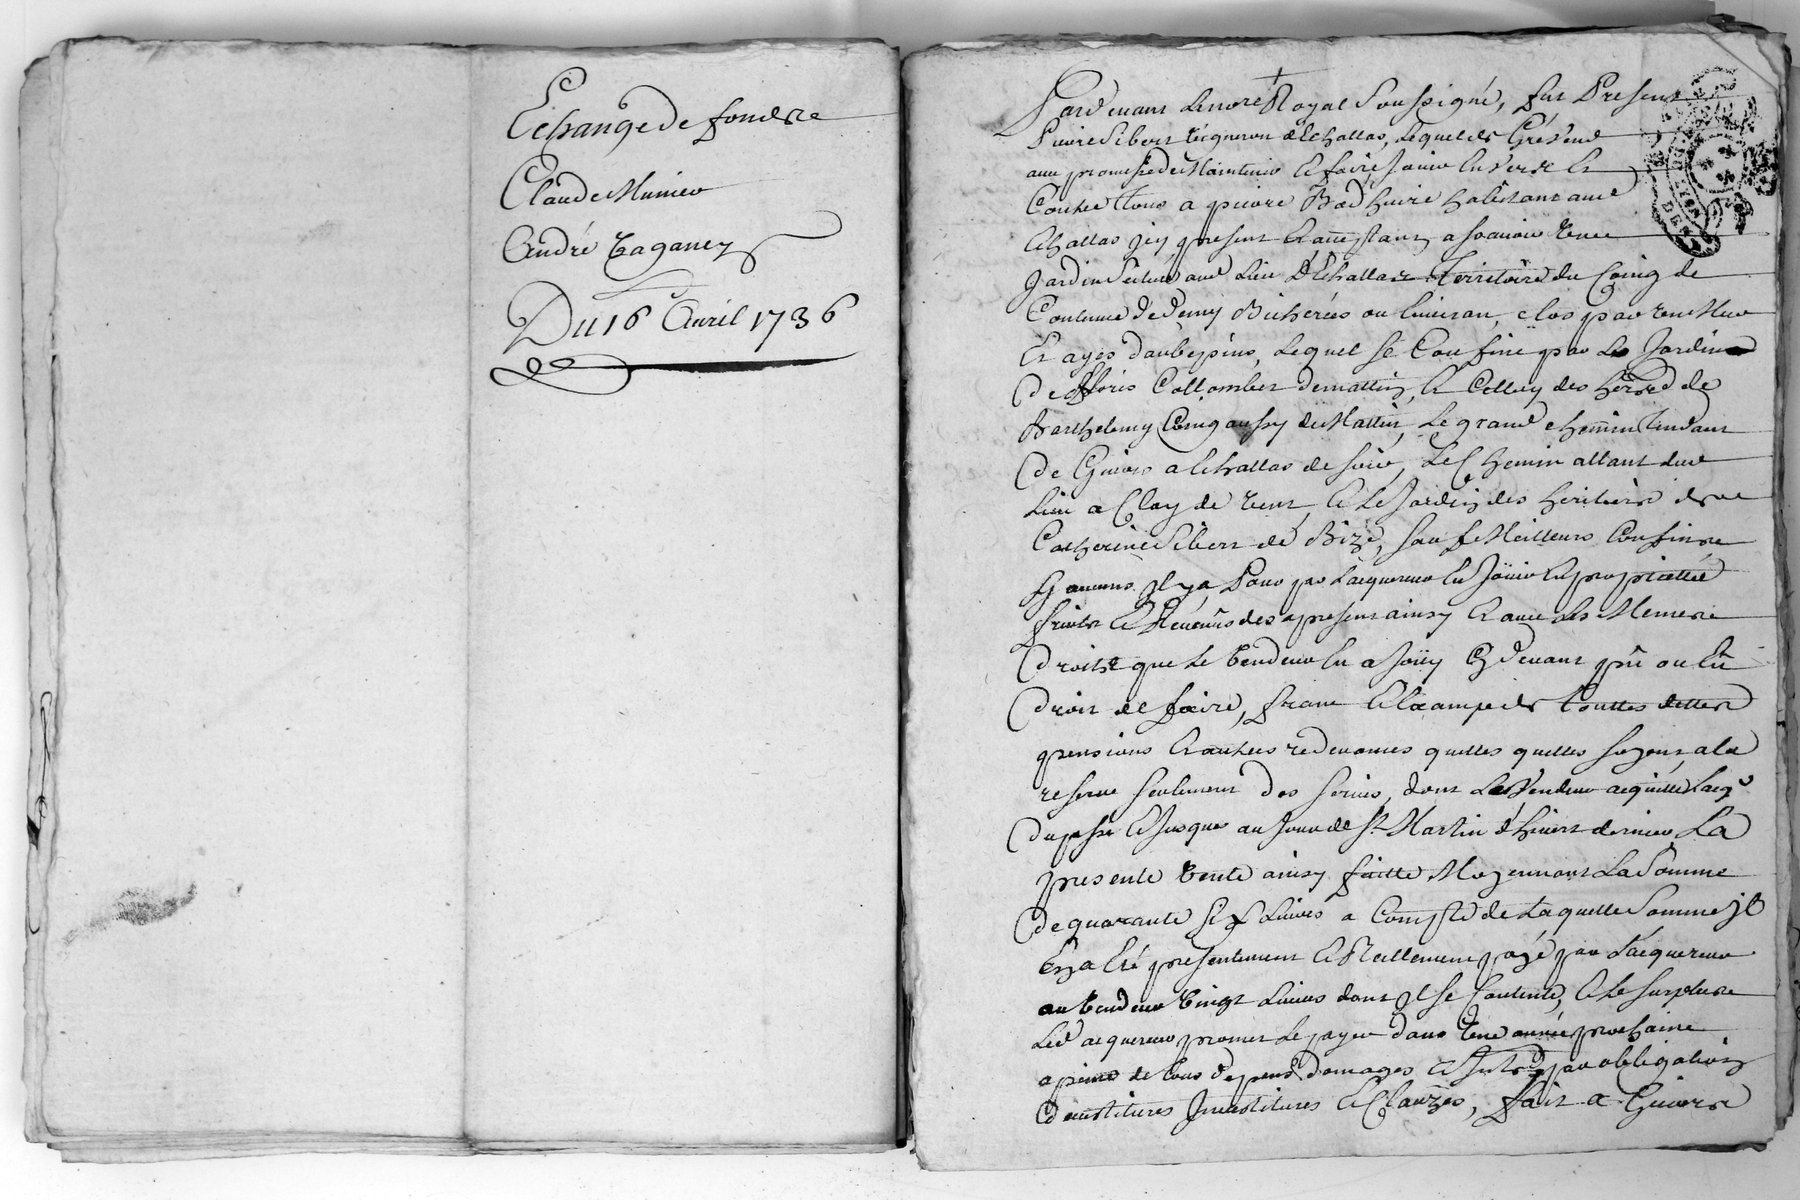 Echange de fondre
Claude Munier
André Taganey
Du 16 Avril 1736
Pardevant Lenore Royal Soussigné, fut Present
Pierre Sibert vigneron d'Echallas, Lequel de Gré Vend
avec promesse de Maintenir et faire Jouir Envers et
Contre tous a pierre habitant aud
Echallas jcy present et acceptant a scavoir Une
Jardin Scitué aud Lieu d'Echallas Territoire du Coing de
Contenue de demy Bicherées ou Environ, clos par Une Mur
Et ayes d'aubepine, Lequel se Confine par Le Jardin
de Colombet de mattin, et Celluy des hers de
Barthelemy de Mattin, Le grand chemin Tendant
de Givors a Echallas de soir, Le Chemin allant dud
Lieu a de vent, et Le Jardin des heritiers de
Catherine Sibert de Bize, sauf Meilleurs Confins
Sy aucuns Il y a, Pour par L'acquereur En Jouir En proprietté
fruits et Revenus des a present ainsy et avec Les Memes
droits que Le Vendeur En a Jouy Cy devant pû ou Eû
droit de faire, franc et Exampt de Touttes dettes
pensions et autres redevances quelles quelles soyent, a la
reserve seulement des servis, dont Le Vendeur acquitte Lacqr
du passé et Jusques au Jour de St Martin d'hivert dernier, La
presente Vente ainsy faitte Moyennant La Somme
de quarante six Livres a Compte de Laquelle Somme Il
En a Eté presentement et Reellement payé par L'acquereur
au Vendeur Vingt Livres dont Il se Contente, et Le surplus
Led acquereur promet Le payer dans Une année prochaine
a peine de tous depens, domages et Interd par obligation
devestitures Investitures et Clauzes, fait a Givors